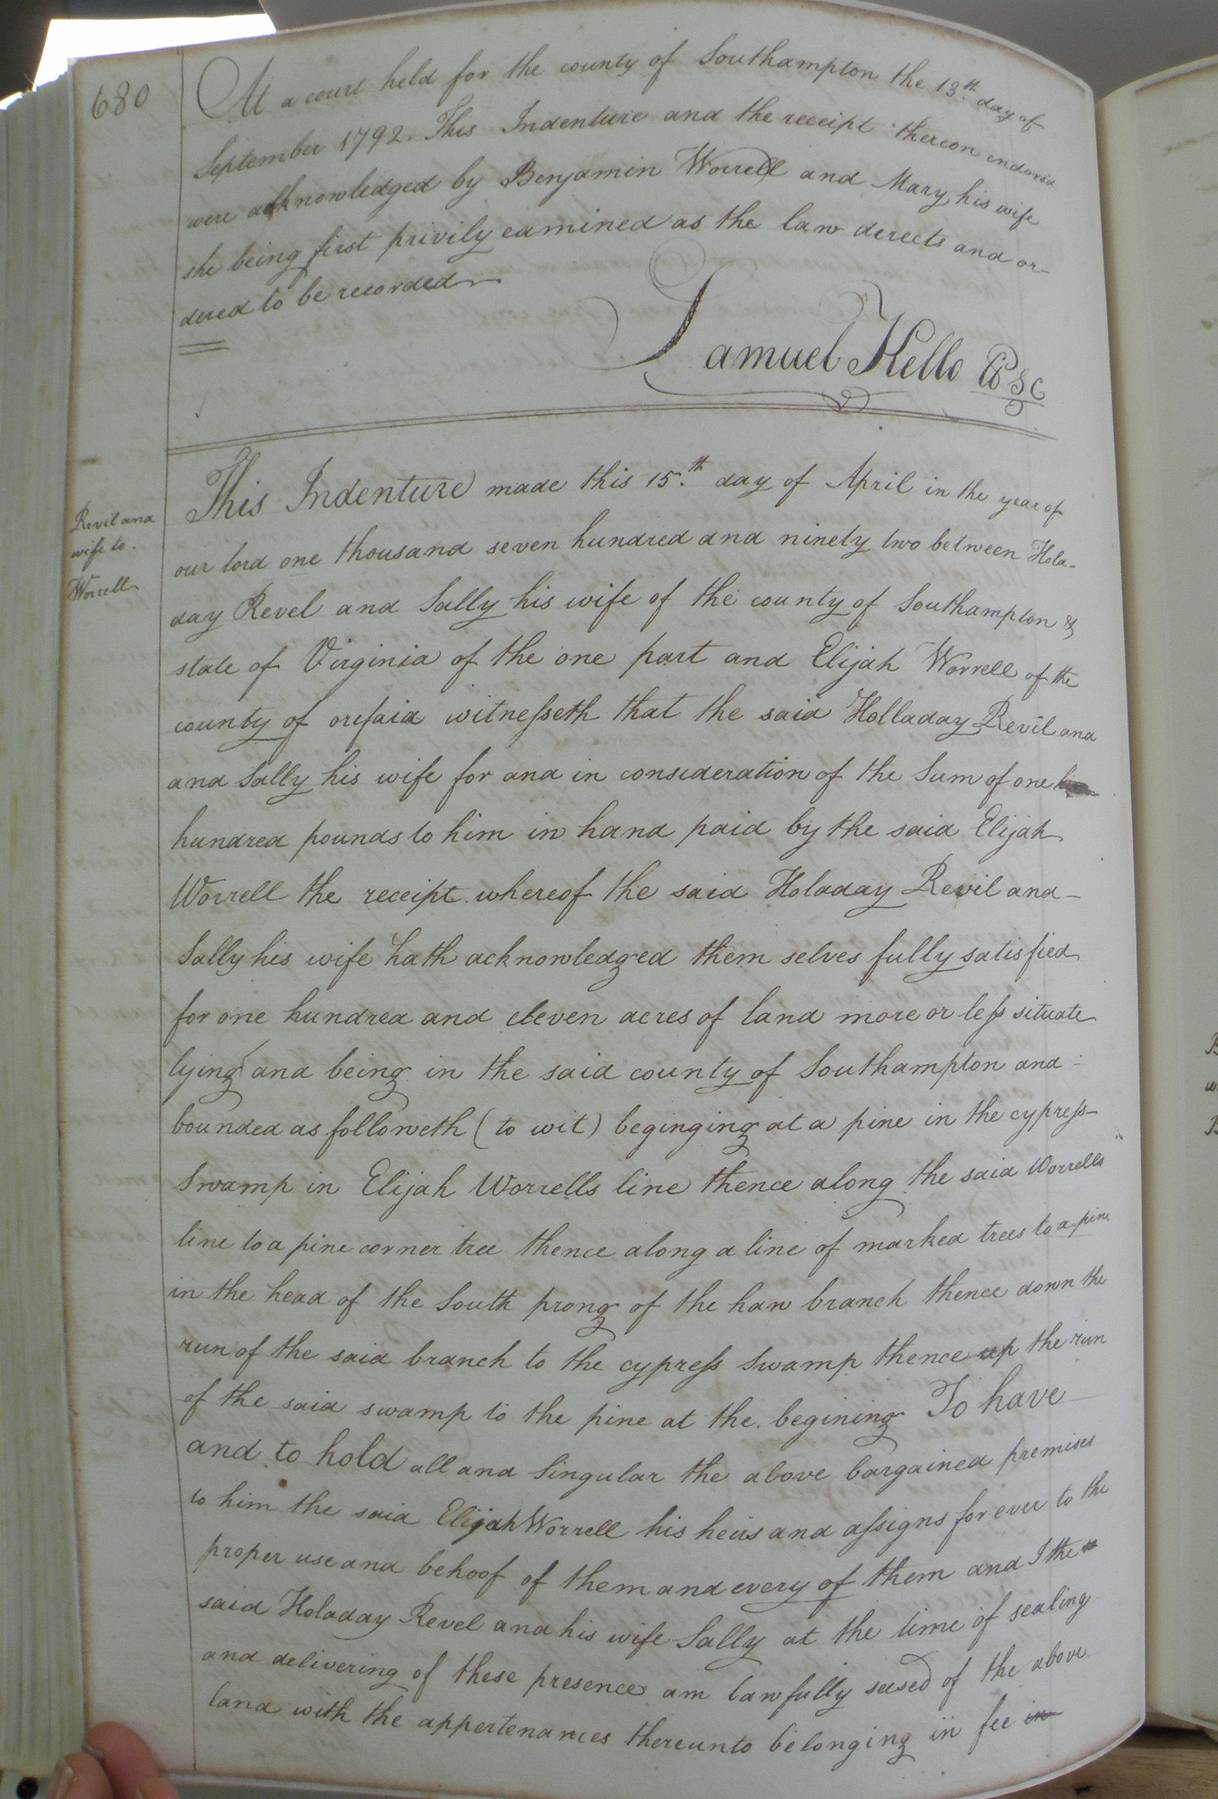 680
At a court held for the county of Southampton the 13th day of
September 1792. This Indenture and the receipt thereon endorsed
were acknowledged by Benjamin Worrell and Mary his wife
she being first privily examined as the law derects and or-
dered to be recorded
Samuel Kello Cl SC
Revil and
wife to.
Worrell
This Indenture made this 15th day of April in the year of
our lord one thousand seven hundred and ninety two between Hola-
day Revel and Sally his wife of the county of Southampton &
state of Virginia of the one part and Elijah Worrell of the
county of oresaid witnesseth that the said Holladay Revil and
and Sally his wife for and in consideration of the Sum of one
hundred pounds to him in hand paid by the said Elijah
Worrell the receipt whereof the said Holaday Revil and
Sally his wife hath acknowledged them selves fully satisfied
for one hundred and eleven acres of land more or less situate
lying and being in the said county of Southampton and
bounded as followeth (to wit) beginging at a pine in the cypress
Swamp in Elijah Worrells line thence along the said Worrells
line to a pine corner tree thence along a line of marked trees to a pine
in the head of the South prong of the haw branch thence down the
run of the said branch to the cypress Swamp thence up the run
of the said swamp to the pine at the begining To have
and to hold all and Singular the above bargained premises
to him the said Elijah Worrell his heirs and assigns for ever to the
proper use and behoof of them and every of them and I the
said Holaday Revel and his wife Sally at the time of sealing
and delivering of these presence am lawfully seised of the above
land with the appertenances thereunto belonging in fee in